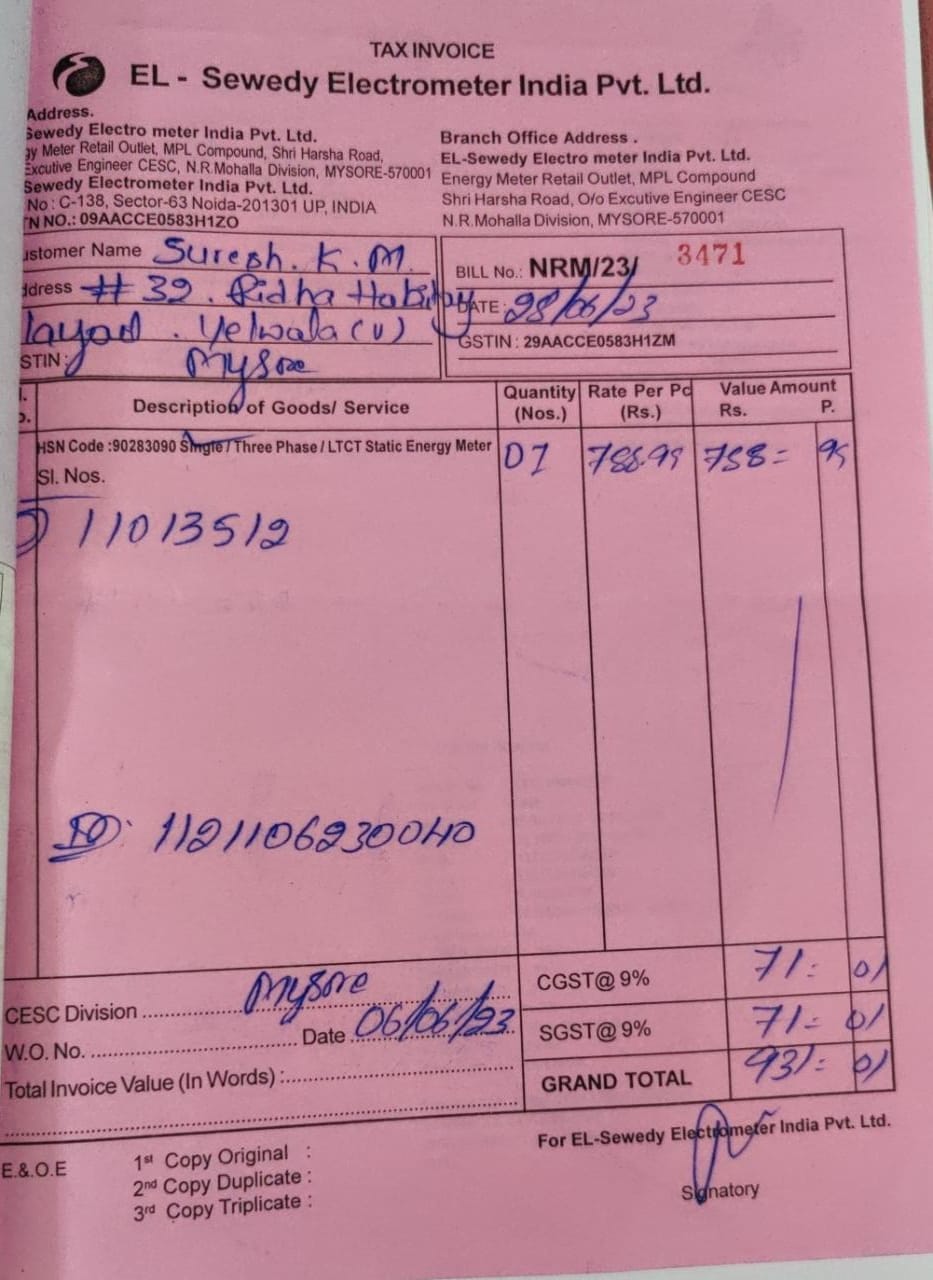 TAX INVOICE
EL - Sewedy Electrometer India Pvt. Ltd.
Address.
Sewedy Electro meter India Pvt. Ltd.
gy Meter Retail Outlet, MPL Compound, Shri Harsha Road,
Excutive Engineer CESC, N.R.Mohalla Division, MYSORE-570001
Sewedy Electrometer India Pvt. Ltd.
No : C-138, Sector-63 Noida-201301 UP, INDIA
TN NO.: 09AACCE0583H1ZO
Branch Office Address .
EL-Sewedy Electro meter India Pvt. Ltd.
Energy Meter Retail Outlet, MPL Compound
Shri Harsha Road, O/o Excutive Engineer CESC
N.R.Mohalla Division, MYSORE-570001
ustomer Name Suresh . K . M.
ddress # 39 . Ridha
layout . Yelwala (V)
STIN : Mysore
BILL No.: NRM/23/ 3471
DATE : 28/06/23
GSTIN : 29AACCE0583H1ZM
Description of Goods/ Service
Quantity (Nos.)
Rate Per Pc (Rs.)
Value Amount
Rs. P.
HSN Code :90283090 Single / Three Phase / LTCT Static Energy Meter 01
Sl. Nos.
11013512
1121106230040
CESC Division Mysore
W.O. No. Date 06/06/23
Total Invoice Value (In Words) :
CGST@ 9% 71= 01
SGST@ 9% 71= 01
GRAND TOTAL 931= 01
For EL-Sewedy Electrometer India Pvt. Ltd.
Signatory
E.&.O.E
1st Copy Original :
2nd Copy Duplicate :
3rd Copy Triplicate :